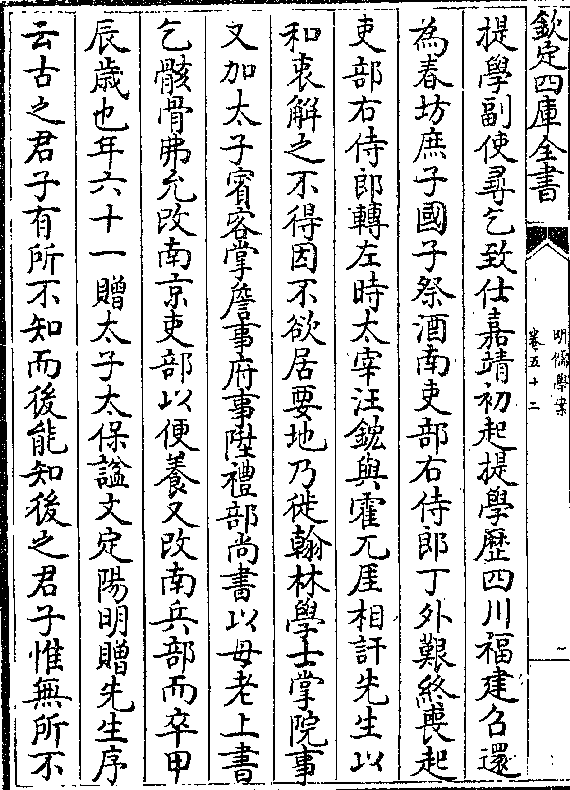 欽定四庫全書
明儒學案
卷五十二
一
提學副使尋乞致仕嘉靖初起提學歷四川福建召還
為春坊庶子國子祭酒南吏部右侍郎丁外艱終喪起
吏部右侍郎轉左時太宰汪鋐與霍兀厓相訐先生以
和衷解之不得因不欲居要地乃徙翰林學士掌院事
又加太子賓客掌詹事府事陞禮部尚書以母老上書
乞骸骨弗允改南京吏部以便養又改南兵部而卒甲
辰歲也年六十一贈太子太保諡文定陽明贈先生序
云古之君子有所不知而後能知後之君子惟無所不